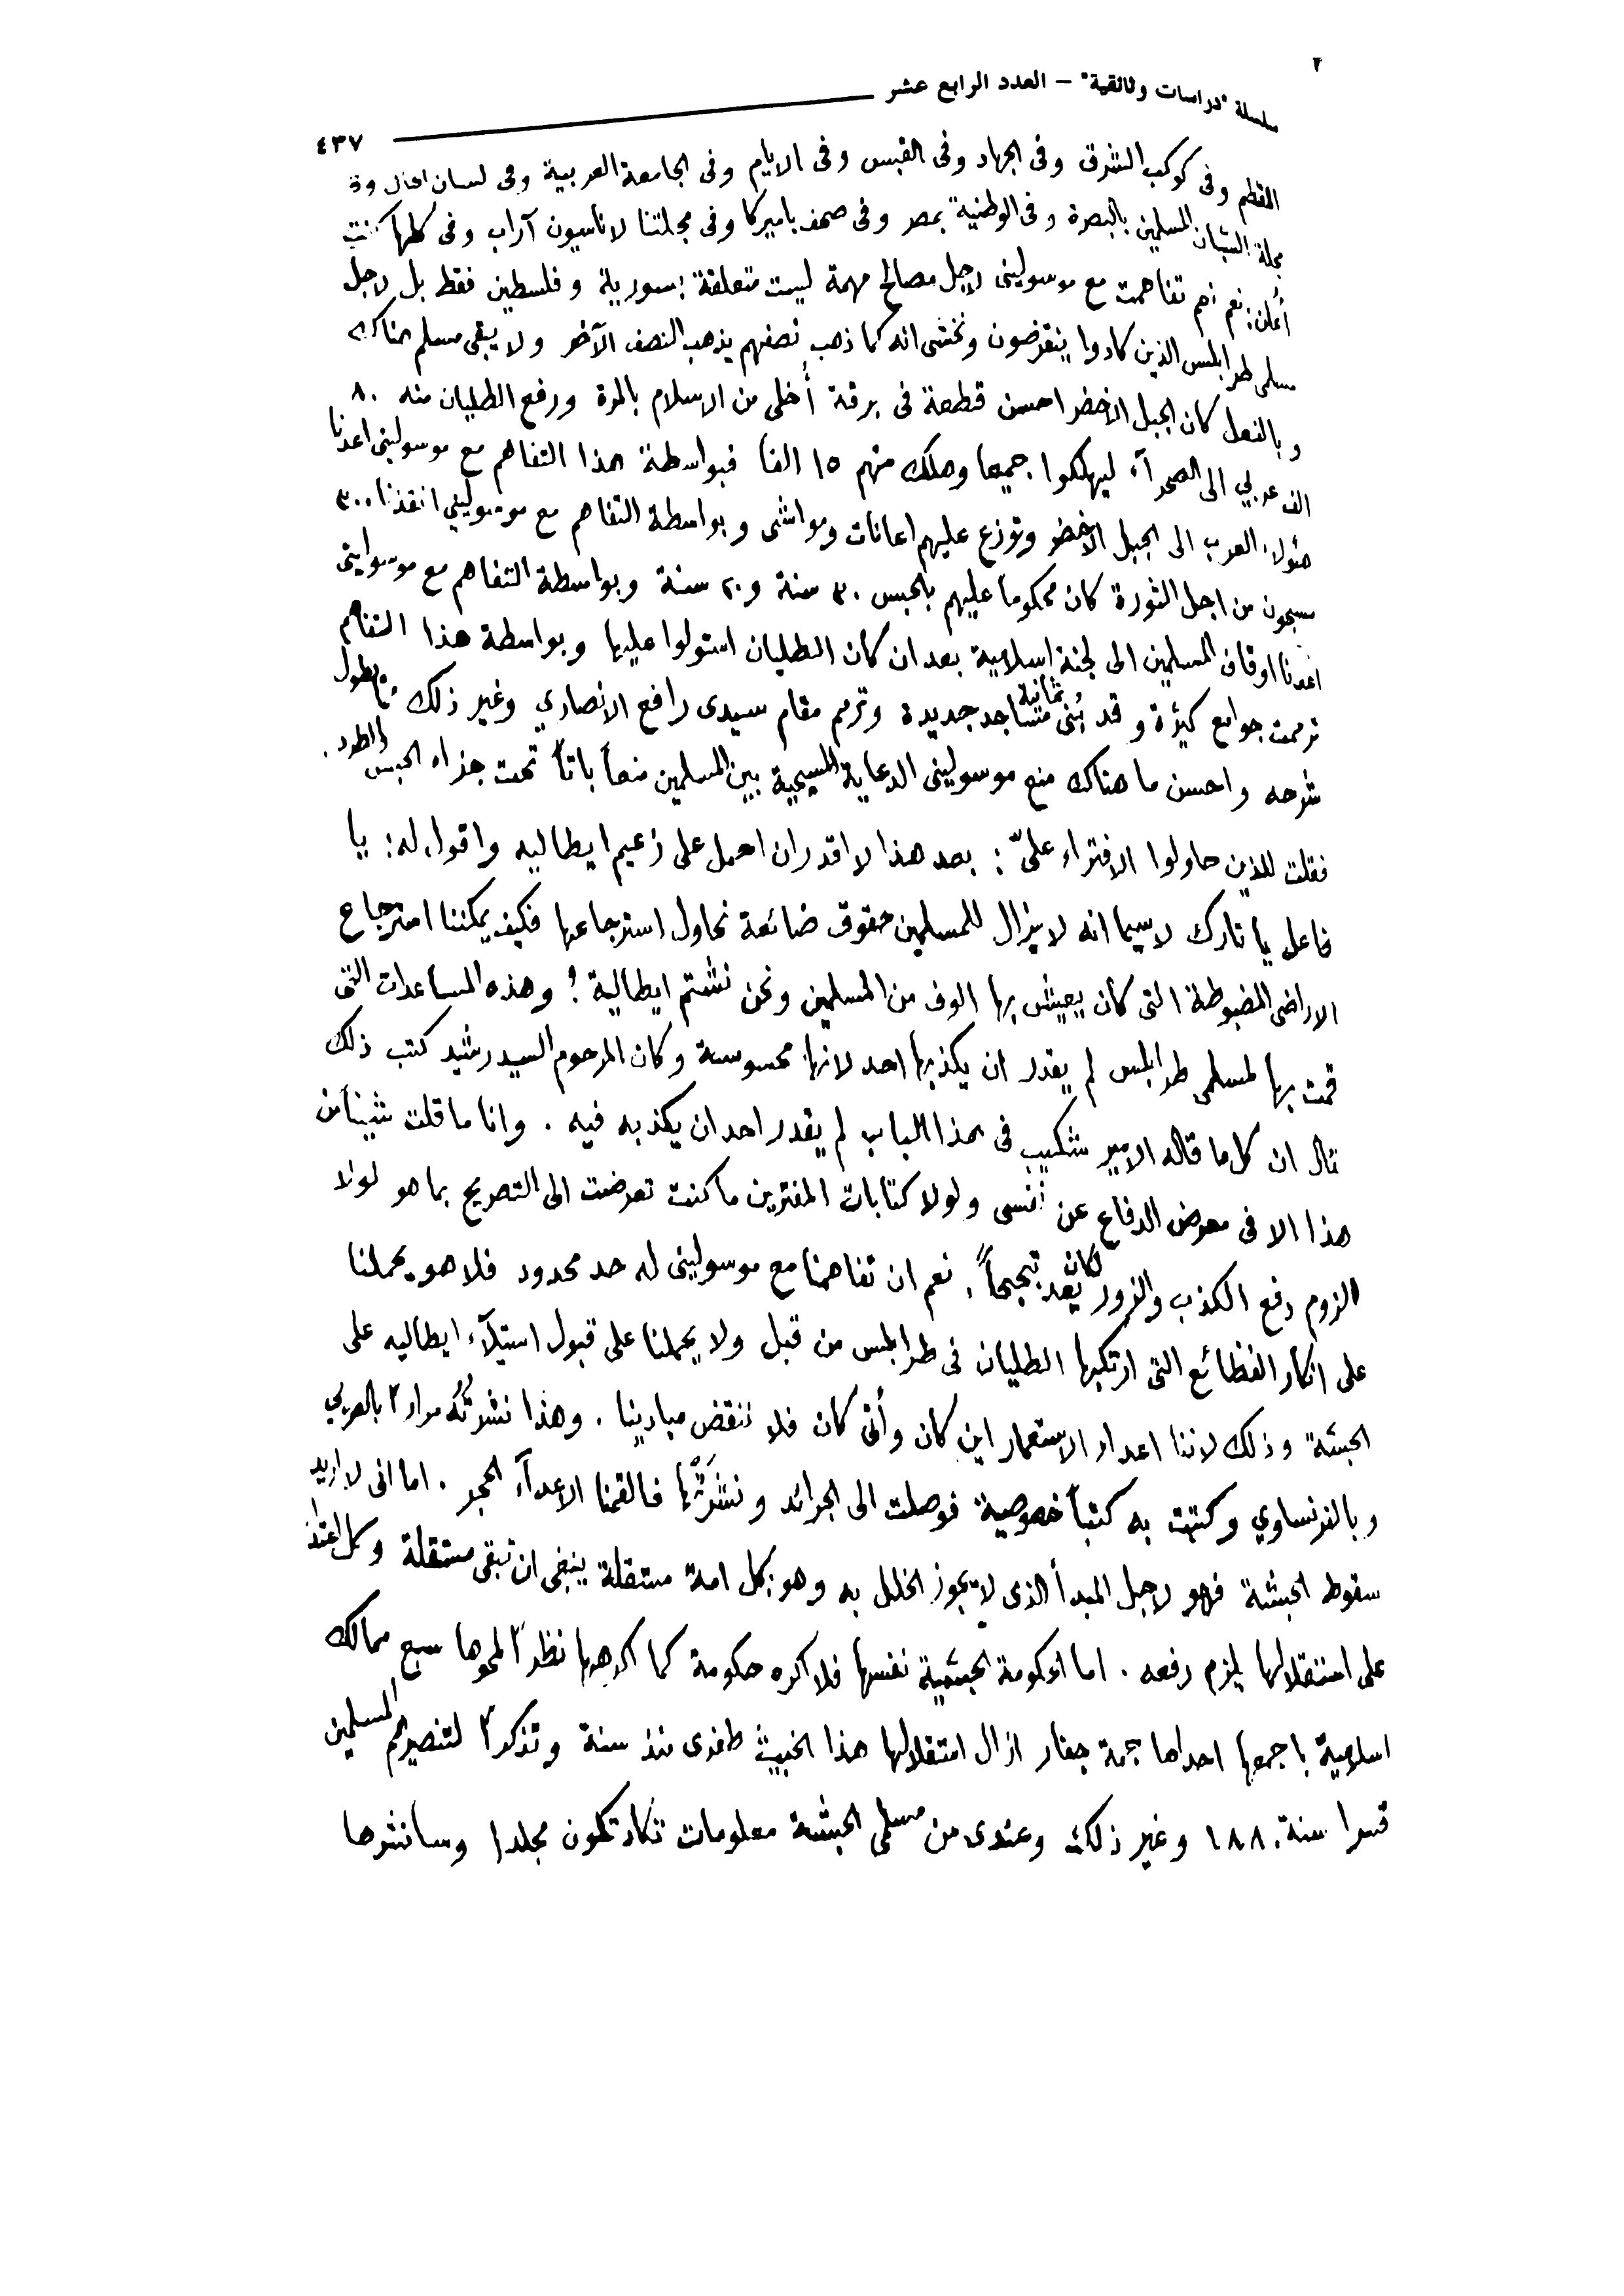 ٢
سلسلة "دراسات وثائقية" – العدد الرابع عشر
٤٣٧
المقطم وفى كوكب الشرق وفى الجهاد وفى القبس وفى الايام وفى الجامعة العربية وفى لسان الحال وفى
مجلة الشبان المسلمين بالبصرة وفى الوطنية بمصر وفى صحف باميركا وفى مجلتنا لاناسيون آراب وفى كلها كنت
أعلن: نعم نعم تفاهمت مع موسولينى لاجل مصالح مهمة ليست متعلقة بسورية وفلسطين فقط بل لاجل
مسلمى طرابلس الذين كادوا ينقرضون ونخشى انه كما ذهب نصفهم يذهب النصف الآخر ولا يبقى مسلم هناك
وبالفعل كان الجبل الاخضر احسن قطعة فى برقة أخلى من الاسلام بالمرة ورفع الطليان منه ٨٠
الف عربي الى الصحرآء ليهلكوا جميعا وهلك منهم ١٥ الفا فبواسطة هذا التفاهم مع موسولينى اعدنا
هؤلاء العرب الى الجبل الاخضر وتوزع عليهم اعانات ومواشى وبواسطة التفاهم مع موسولينى انقذنا ٣٠٠
مسجون من اجل الثورة كان محكوما عليهم بالحبس ٣٠ سنة و٢٠ سنة وبواسطة التفاهم مع موسولينى
اعدنا اوقاف المسلمين الى لجنة اسلامية بعد ان كان الطليان استولوا عليها وبواسطة هذا التفاهم
ترممت جوامع كثيرة وقد بُنى ثمانية مساجد جديدة وترمم مقام سيدى رافع الانصاري وغير ذلك مما يطول
شرحه واحسن ما هناك منع موسولينى الدعاية المسيحية بين المسلمين منعاً باتاً تحت جزاء الحبس والطرد.
فقلت للذين حاولوا الافتراء علىّ: بعد هذا لا اقدر ان احمل على زعيم ايطاليه واقول له: يا
فاعل يا تارك لاسيما انه لا يزال للمسلمين حقوق ضائعة نحاول استرجاعها فكيف يمكننا استرجاع
الاراضى المضبوطة التى كان يعيش بها الوف من المسلمين ونحن نشتم ايطالية؟ وهذه المساعدات التى
قمت بها لمسلمى طرابلس لم يقدر ان يكذبها احد لانها محسوسة وكان المرحوم السيد رشيد كتب ذلك
قال ان كل ما قاله الامير شكيب فى هذا الباب لم يقدر احد ان يكذبه فيه. وانا ما قلت شيئاً من
هذا الا فى معرض الدفاع عن نفسى ولولا كتابات المفترين ما كنت تعرضت الى التصريح بما هو لولا
لزوم دفع الكذب والزور لكان يُعد تبجحاً. نعم ان تفاهمنا مع موسولينى له حد محدود فلا هو يحملنا
على انكار الفظائع التى ارتكبها الطليان فى طرابلس من قبل ولا يحملنا على قبول استيلآء ايطاليه على
الحبشة وذلك لاننا اعداء الاستعمار اين كان وأنّى كان فلا ننقض مبادينا. وهذا نشرتُهُ مراراً بالعربي
وبالفرنساوي وكتبت به كتباً خصوصية فوصلت الى الجرائد ونشرَتْها فالقمنا الاعدآء الحجر. اما انى لا اريد
سقوط الحبشة فهو لاجل المبدأ الذى لا يجوز الخلل به وهو: كل امة مستقلة ينبغى ان تبقى مستقلة وكل اعتداء
على استقلالها يلزم رفعه. اما الحكومة الحبشية نفسها فلا اكره حكومة كما اكرهها نظراً لمحوها سبع ممالك
اسلامية باجمعها احداها جمة جفار ازال استقلالها هذا الخبيث طفرى منذ سنة وتذكراً لتنصيرهم المسلمين
قسرا سنة ١٨٨٠ وغير ذلك وعندى من مسلمى الحبشة معلومات تكاد تكون مجلدا وسأنشرها